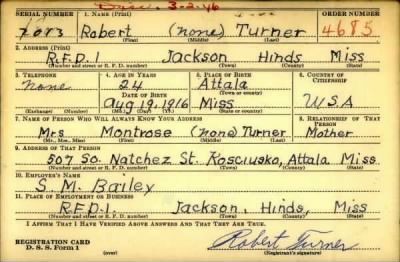 Disc. 3-2-46
SERIAL NUMBER 1. NAME (Print) ORDER NUMBER
Robert (none) Turner 4685
(First) (Middle) (Last)
2. ADDRESS (Print)
R.F.D.1. Jackson Hinds Miss
(Number and street or R. F. D. number) (Town) (County) (State)
3. TELEPHONE 4. AGE IN YEARS 5. PLACE OF BIRTH 6. COUNTRY OF CITIZENSHIP
none 24 Attala
DATE OF BIRTH (Town or county)
Aug 19, 1916 Miss U.S.A
(Exchange) (Number) (Mo.) (Day) (Yr.) (State or country)
7. NAME OF PERSON WHO WILL ALWAYS KNOW YOUR ADDRESS 8. RELATIONSHIP OF THAT PERSON
Mrs Montrose (none) Turner Mother
(Mr., Mrs., Miss) (First) (Middle) (Last)
9. ADDRESS OF THAT PERSON
507 So. Natchez St. Kosciusko, Attala Miss.
(Number and street or R. F. D. number) (Town) (County) (State)
10. EMPLOYER'S NAME
S. M. Bailey
11. PLACE OF EMPLOYMENT OR BUSINESS
R.F.D.1. Jackson, Hinds, Miss
(Number and street or R. F. D. number) (Town) (County) (State)
I AFFIRM THAT I HAVE VERIFIED ABOVE ANSWERS AND THAT THEY ARE TRUE.
REGISTRATION CARD
D. S. S. Form 1 (over) Robert Turner
(Registrant's signature)